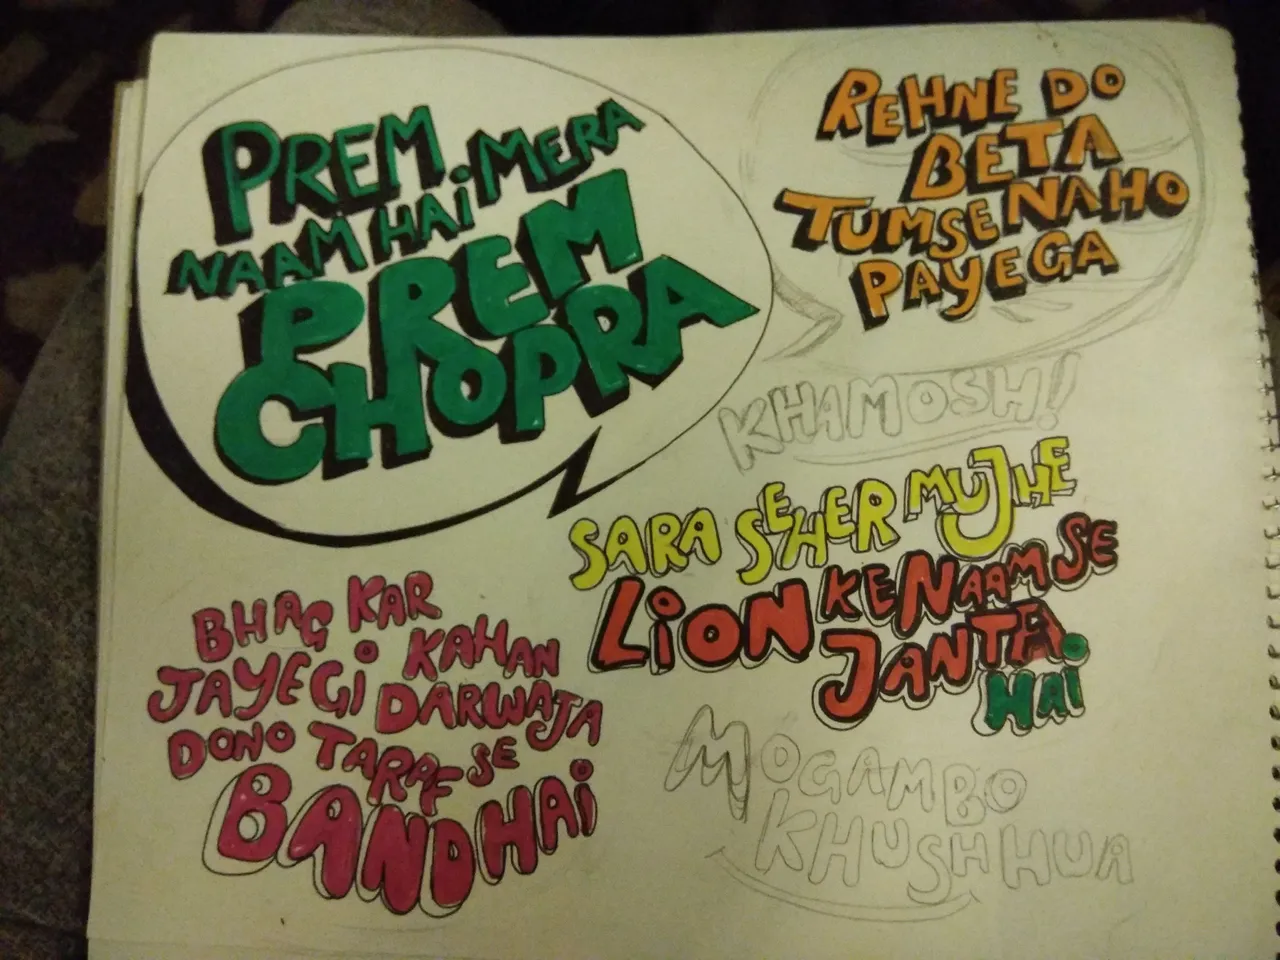 PREM
NAAM HAI MERA
PREM
CHOPRA
REHNE DO
BETA
TUMSE NA HO
PAYEGA
KHAMOSH!
SARA SEHER MUJHE
LION KE NAAM SE
JANTA
HAI
BHAG KAR
JAYEGI KAHAN
DARWAJA
DONO TARAF SE
BAND HAI
MOGAMBO
KHUSH HUA